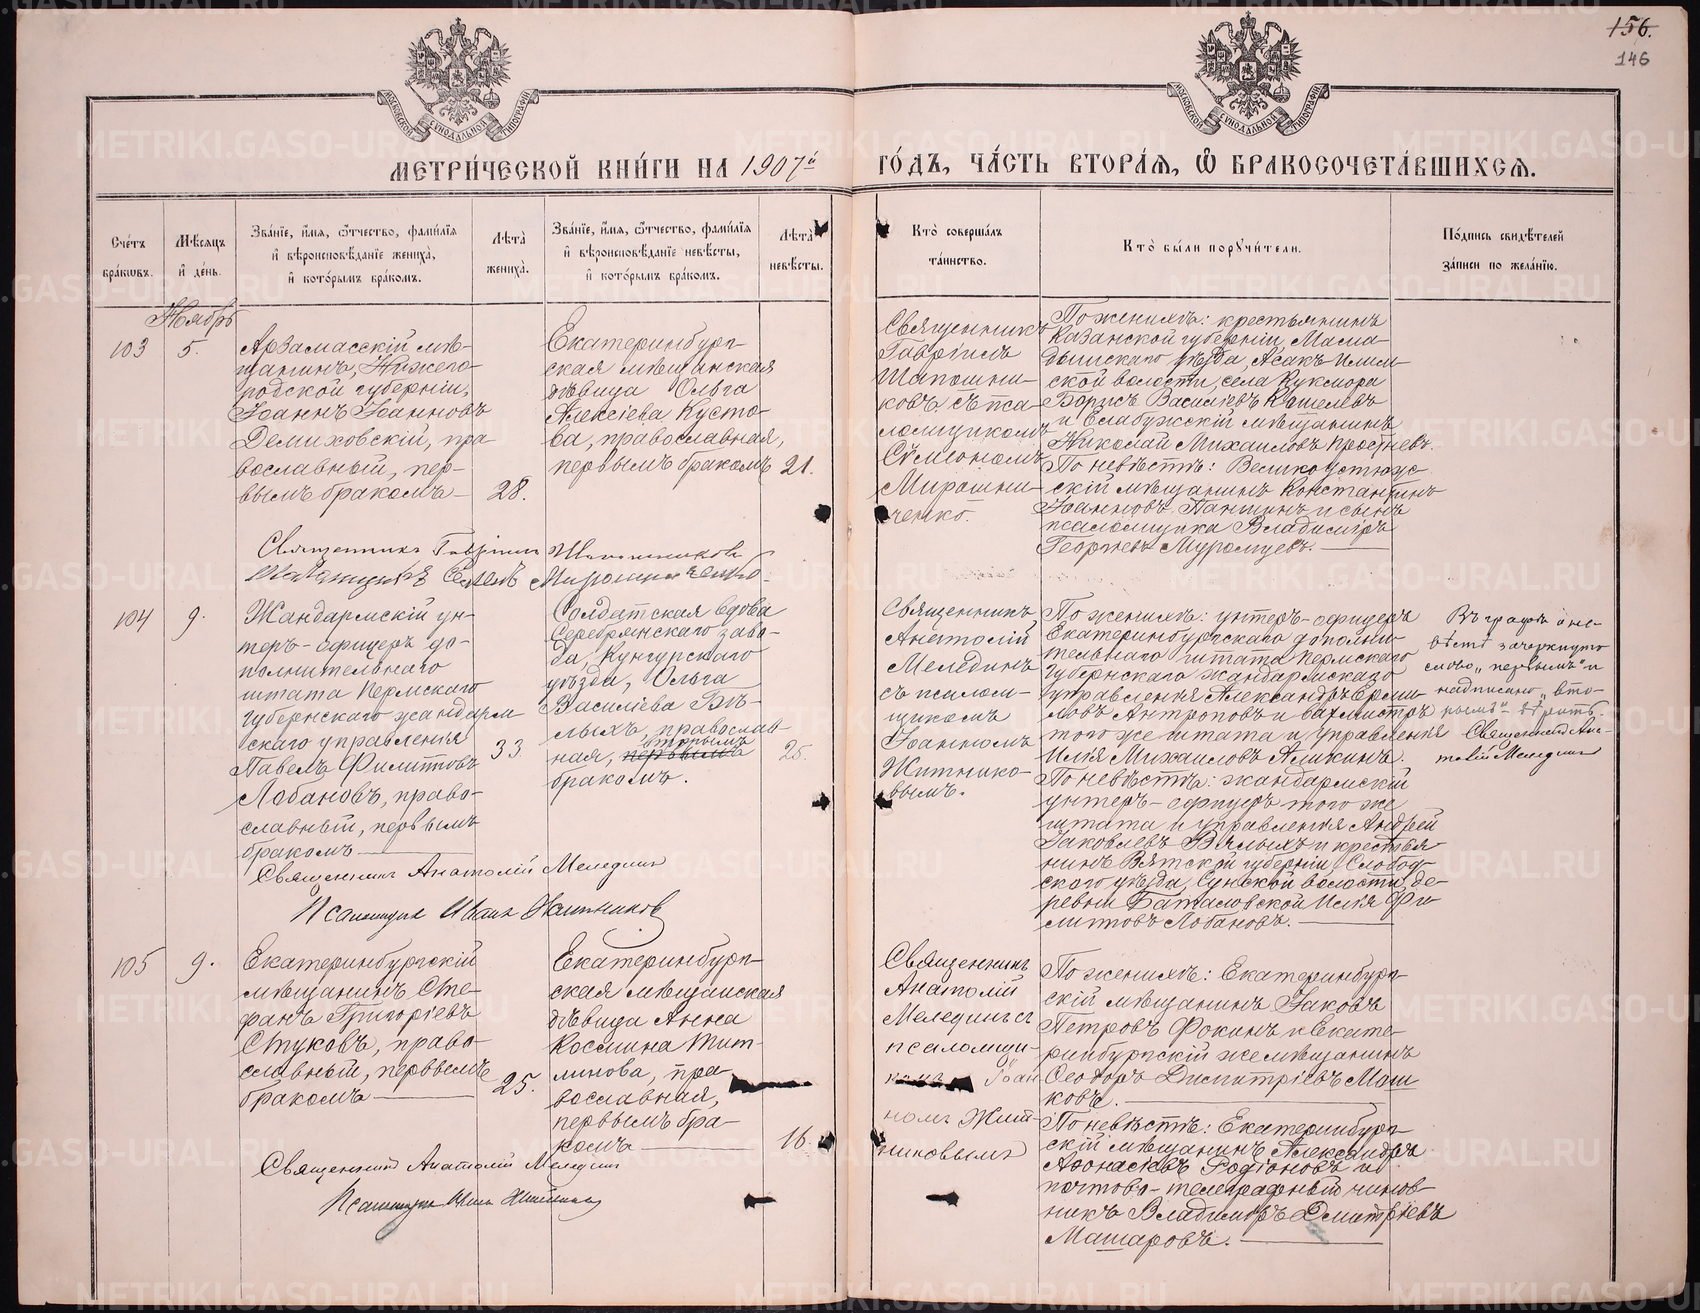 156.
146
МЕТРИ́ЧЕСКОЙ КНИ́ГИ НА 1907й ГО́ДЪ, ЧА́СТЬ ВТОРА́Я, Ѽ БРАКОСОЧЕТА́ВШИХСЯ.
Сче́тъ
бра́ковъ.
Мѣ́сяцъ
и҆ де́нь.
Зва́нїе, и҆́мя, ѻ҆́тчество, фами́лїя
и҆ вѣроисповѣ́данїе жениха̀,
и҆ кото́рымъ бра́комъ.
Лѣ́та
жениха̀.
Зва́нїе, и҆́мя, ѻ҆́тчество, фами́лїя
и҆ вѣроисповѣ́данїе невѣ́сты,
и҆ кото́рымъ бра́комъ.
Лѣ́та
невѣ́сты.
Кто̀ соверша́лъ
та́инство.
Кто̀ бы́ли порꙋчи́тели.
По́дпись свидѣ́телей
за́писи по жела́нїю.
Ноябрь
103
5.
Арзамасскій мѣ-
щанинъ, Нижего-
родской губерніи,
Іоаннъ Іоанновъ
Демиховскій, пра-
вославный, пер-
вымъ бракомъ
28.
Екатеринбург-
ская мѣщанская
дѣвица Ольга
Алексіева Кусто-
ва, православная,
первымъ бракомъ
21.
Священникъ
Гавріилъ
Шапошни-
ковъ съ пса-
ломщикомъ
Сѵмеономъ
Мирошни-
ченко.
По женихѣ: крестьянинъ
Казанской губерніи, Мама-
дышскаго уѣзда, Асакъ-Илим-
ской волости, села Кукмора
Борисъ Василіевъ Кошелевъ
и Елабужскій мѣщанинъ
Николай Михаиловъ
По невѣстѣ: Великоустюж-
скій мѣщанинъ Константинъ
Іоанновъ Паншинъ и сынъ
псаломщика Владиміръ
Георгіевъ Муромцевъ.
Священникъ Гавріилъ Шапошниковъ
Псаломщикъ Семенъ Мирошниченко.
104
9.
Жандармскій ун-
теръ-офицеръ до-
полнительнаго
штата Пермскаго
губернскаго жандарм-
скаго управленія
Павелъ Филипповъ
Лобановъ, право-
славный, первымъ
бракомъ
33.
Солдатская вдова
Серебрянскаго заво-
да, Кунгурскаго
уѣзда, Ольга
Василіева Бѣ-
лыхъ, православ-
вторымъ
ная, первымъ
бракомъ.
25.
Священникъ
Анатолій
Мелединъ
съ псалом-
щикомъ
Іоанномъ
Житнико-
вымъ.
По женихѣ: унтеръ-офицеръ
Екатеринбургскаго дополни-
тельнаго штата Пермскаго
губернскаго жандармскаго
управленія Александръ Ерми-
ловъ Антроповъ и вахмистръ
того же штата и управленія
Илія Михаиловъ Аликинъ.
По невѣстѣ: жандармскій
унтеръ-офицеръ того же
штата и управленія Андрей
Іаковлевъ Вялыхъ и крестья-
нинъ Вятской губерніи, Слобод-
скаго уѣзда, Сунской волости, де-
ревни Баталовской Илія Фи-
липповъ Лобановъ.
Въ графѣ о не-
вѣстѣ зачеркнуто
слово „первымъ“ и
надписано „вто-
рымъ“ вѣрить.
Священникъ Ана-
толій Меледин
Священникъ Анатолій Меледин
Псаломщик Иван Житников
105
9.
Екатеринбургскій
мѣщанинъ Сте-
фанъ Григоріевъ
Стуковъ, право-
славный, первымъ
бракомъ
25.
Екатеринбург-
ская мѣщанская
дѣвица Анна
Космина Тит-
линова, пра-
вославная,
первымъ бра-
комъ
16.
Священникъ
Анатолій
Мелединъ съ
псаломщи-
комъ Іоан-
номъ Жит-
никовымъ
По женихѣ: Екатеринбург-
скій мѣщанинъ Іаковъ
Петровъ Фокинъ и Екате-
ринбургскій же мѣщанинъ
Ѳеодоръ Димитріевъ Маш-
ковъ.
По невѣстѣ: Екатеринбург-
скій мѣщанинъ Александръ
Аѳонасіевъ Родіоновъ и
почтово-телеграфный чинов-
никъ Владиміръ Дмитріевъ
Машаровъ.
Священникъ Анатолій Меледин
Псаломщик Иван Житников